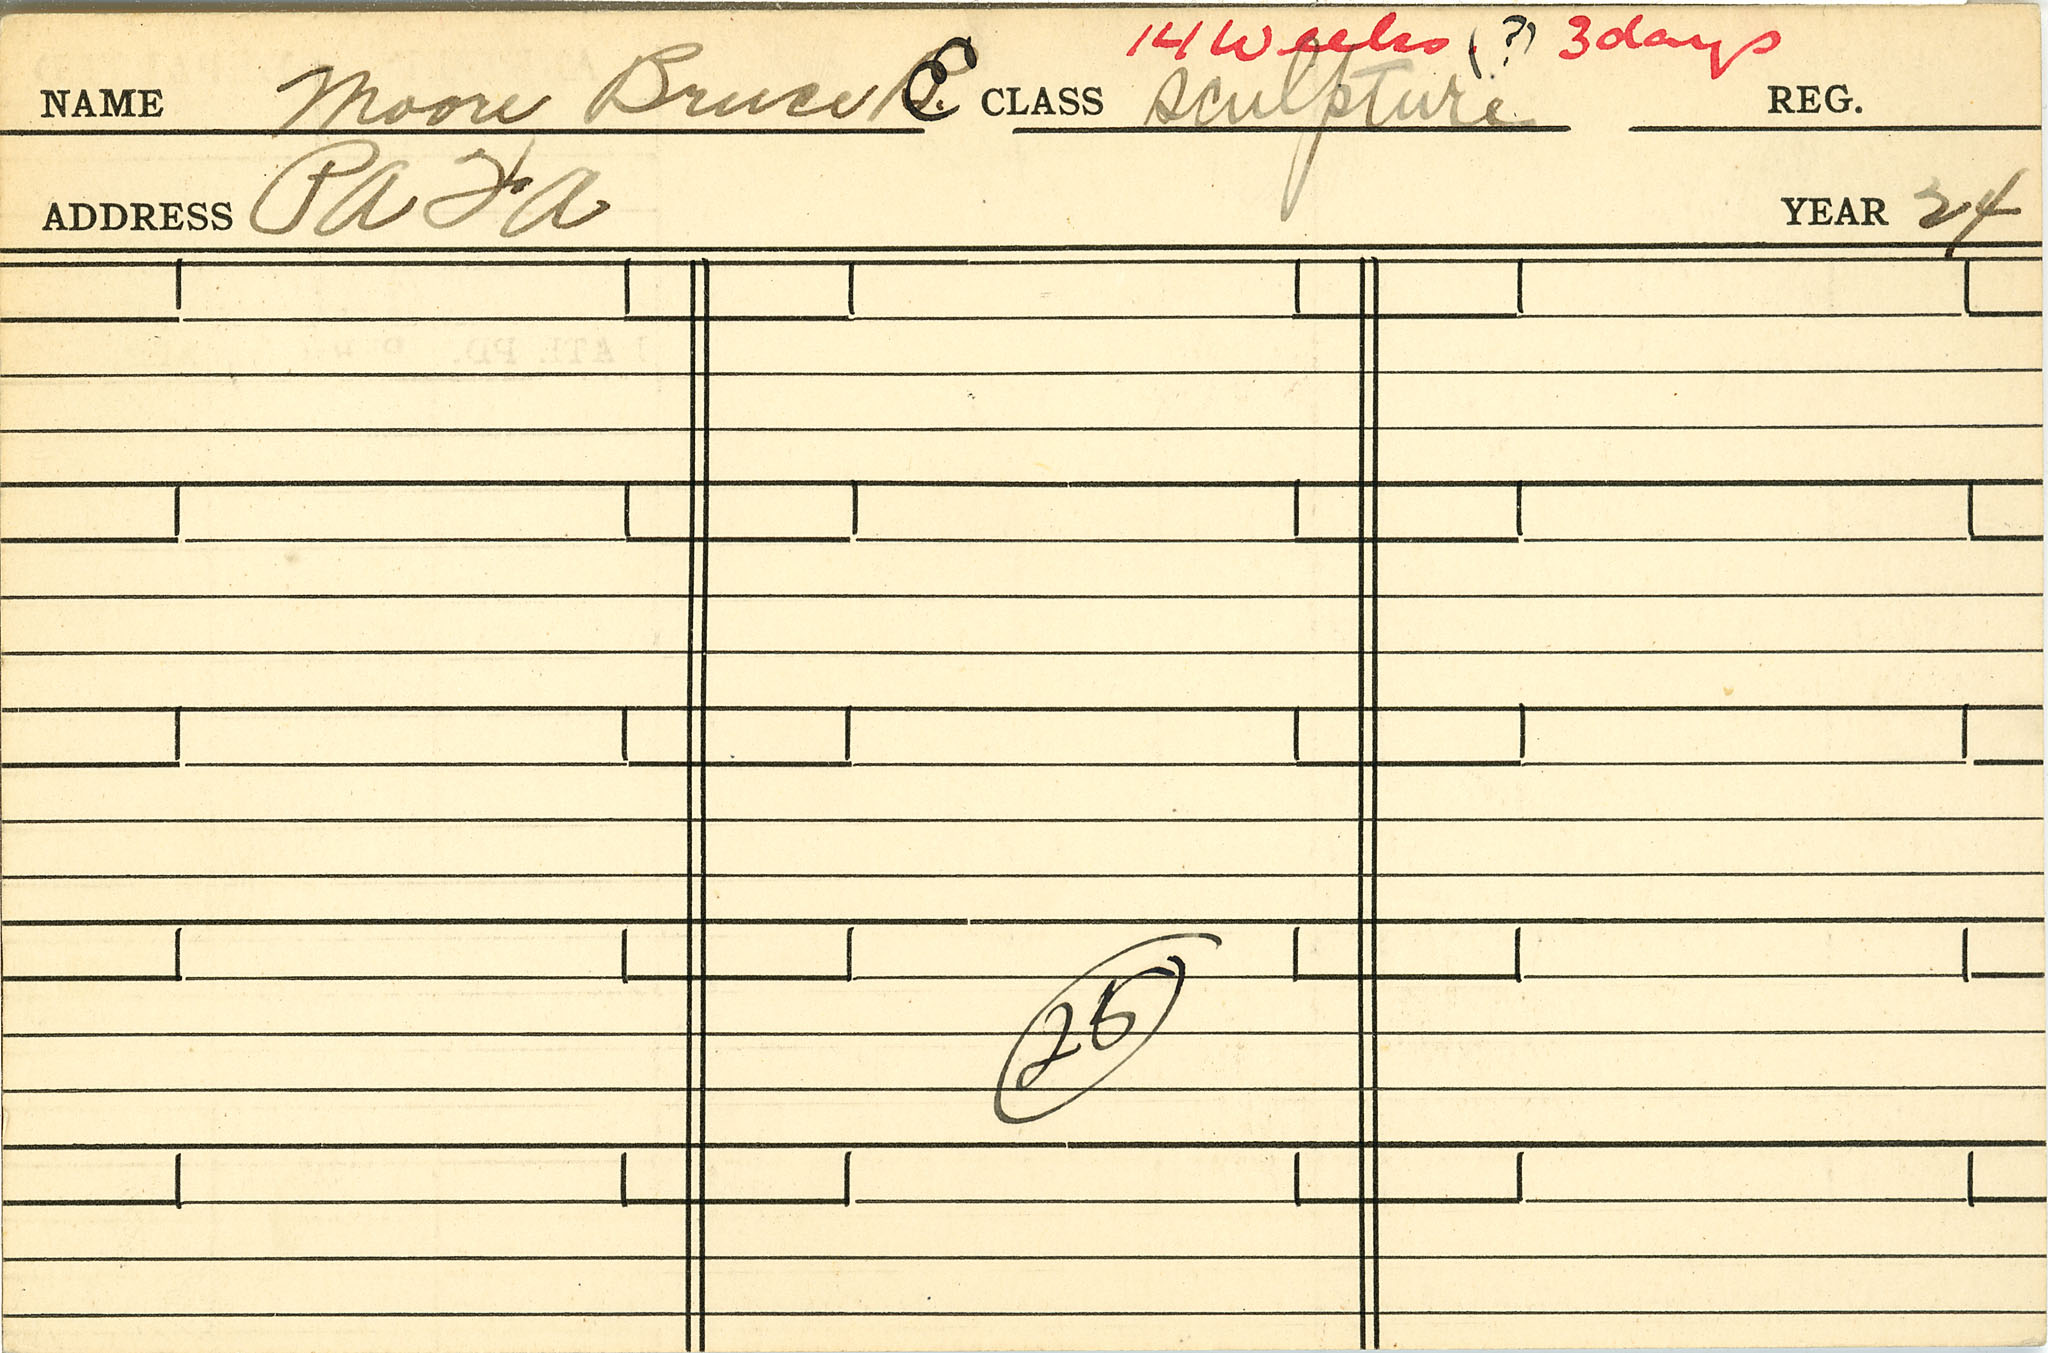 14 Weeks (?) 3 days
NAME Moore Bruce E. CLASS sculpture REG.
ADDRESS PAFA YEAR 24
25